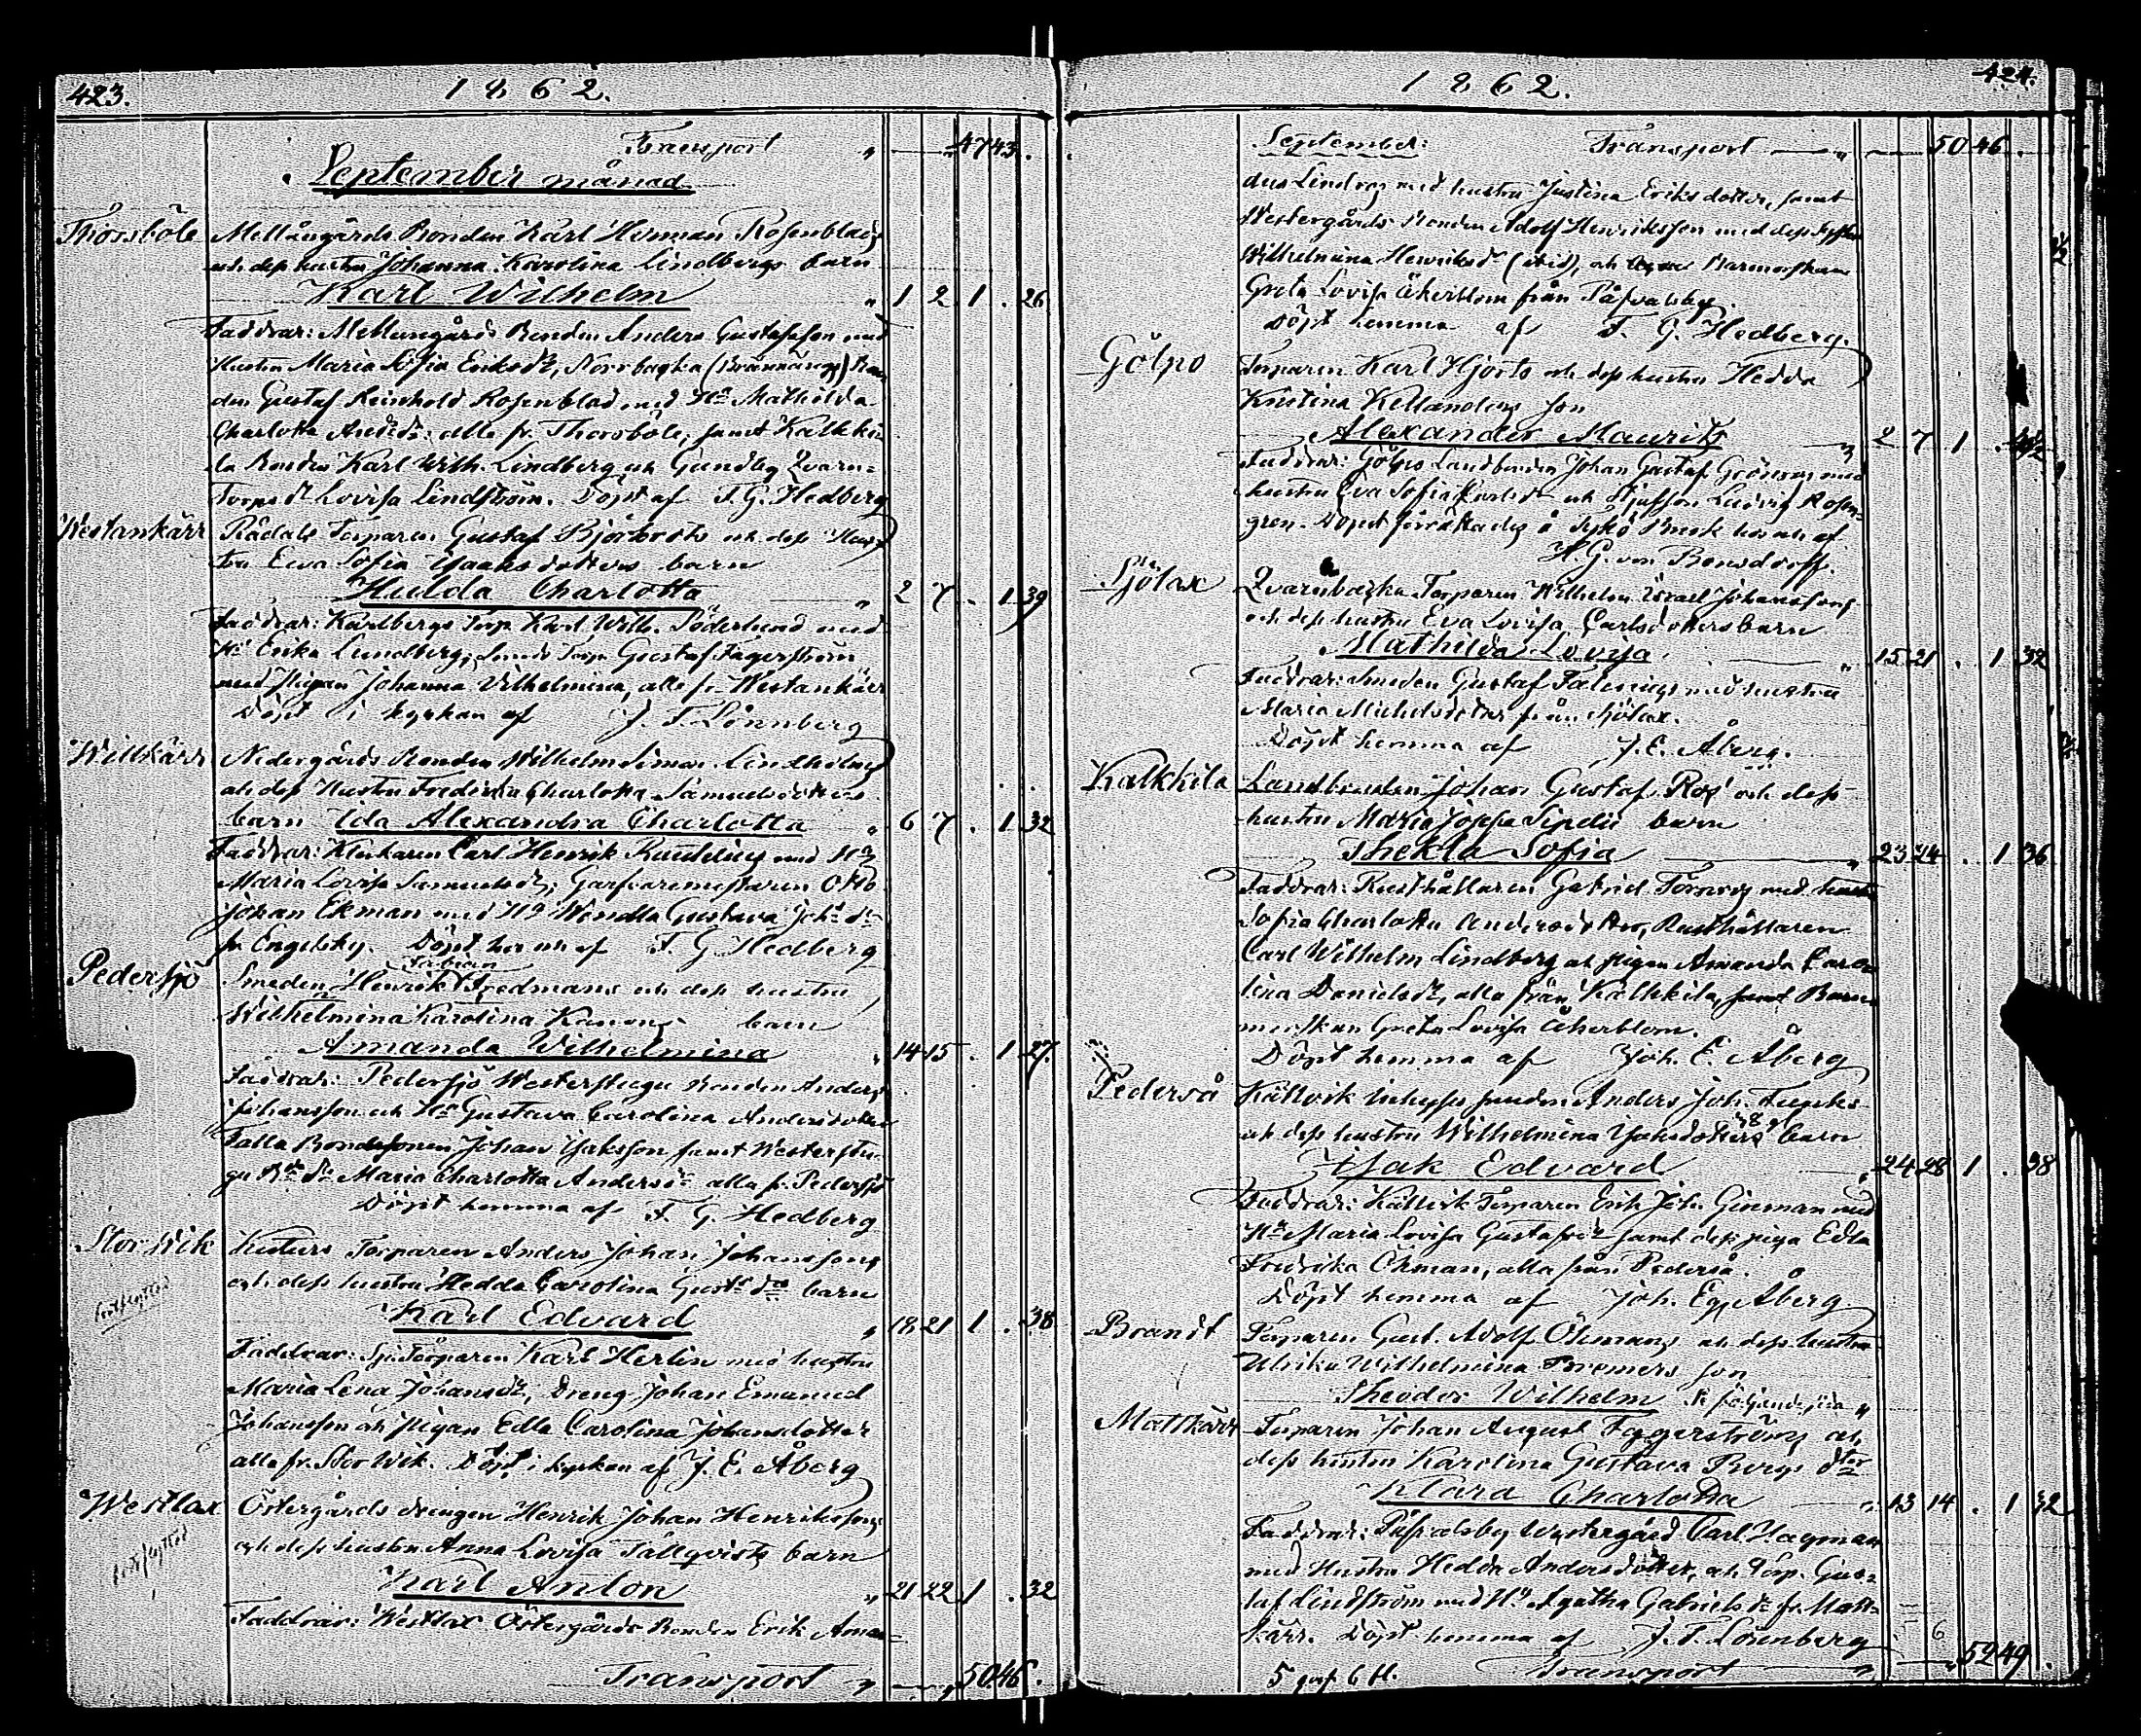 423.
1862.
Transport " — " 47 43.
September månad
Thorsböle Mellangårds Bonden Karl Herman Rosenblads
och dess hustru Johanna Karolina Lindbergs barn
Karl Wilhelm " 1 2 1 . 26
Faddrar: Mellangårds Bonden Anders Gustafsson med
Hustru Maria Sofia Eriksdr, Norrbacka (Brännängs) Bon
den Gustaf Reinhold Rosenblad med Hu Mathilda
Charlotta Andsdr. alla fr. Thorsböle, samt Kalkki-
la Bonden Karl Wilh. Lindberg och Gundby Qvarn-
Torps dr Lovisa Lindström. Döpt af F. G. Hedberg
Westankärr Rådals Torparen Gustaf Björkvists och dess Hus-
tru Eva Sofia Isaksdotters barn
Hulda Charlotta " 2 7 . 1 39
Faddrar: Karlbergs Torp. Karl Wilh. Söderlund med
Hu Erika Lundberg, Sunds Torp. Gustaf Fagerström
med pigan Johanna Vilhelmina, alla fr. Westankärr
Döpt i kyrkan af J. F. Lönnberg
Willkärr Nedergårds Bonden Wilhelm Simon Lindholms
och dess Hustru Fredrika Charlotta Samuelsdotters
barn Ida Alexandra Charlotta " 6 7 . 1 32
Faddrar: Klockaren Carl Henrik Randelius med Hu
Maria Lovisa Samuelsdr; Garfvaremästaren Otto
Johan Ekman med Hu Wendla Gustava Joh. dr
fr. Engelsby. Döpt hemma af F. G. Hedberg
Fabian
Pedersjö Smeden Henrik Fredmans och dess hustru
Wilhelmina Karolina Kanons barn
Amanda Wilhelmina " 14 15 . 1 27
Faddrar: Pedersjö Westerstugu Bonden Anders
Johansson och Hu Gustava Carolina Andersdotter
Talla Bondesonen Johan Isaksson samt Westerstu-
gu Bde dr Maria Charlotta Andersdr alla fr. Pedersjö
Döpt hemma af F. G. Hedberg
Stor Wik Torparen Anders Johan Johanssons
och dess hustru Hedda Carolina Gustfs drs barn
Karl Edvard " 18 21 1 . 38
Faddrar: Torparen Karl Herlin med hustru
Maria Lena Johansdr, Dreng Johan Emanuel
Johansson och pigan Edla Carolina Johansdotter
alla fr. Stor Wik. Döpt i kyrkan af J. E. Åberg
Westlax Östergårds drengen Henrik Johan Henrikssons
och dess hustru Anna Lovisa Tallqvists barn
Karl Anton " 21 22 1 . 32
Faddrar: Westlax Östergårds Bonden Erik Aman-
Transport " — " 50 46.
424.
1862.
September: Transport — " — 50 46.
dus Lindroos med hustru Justina Eriksdotter, samt
Westergårds Bonden Adolf Henriksson med dess syster
Wilhelmina Henriksdr (ibid), och Barnmorskan
Greta Lovisa Åkerblom från Påfvalsby.
Döpt hemma af F. G. Hedberg.
Gölpo Torparen Karl Hjorts och dess hustru Hedda
Kristina Kellanders son
Alexander Maurits " 2 7 1 .
Faddrar: Gölpo Landbonden Johan Gustaf Grönroos med
hustru Eva Sofia och Ludvig Rosen-
gren. Döpet förrättades å Tykö Bruk af
H. G. von Bonsdorff.
Mjölax Qvarnbacka Torparen Wilhelm Israel Johanssons
och dess hustru Eva Lovisa Carlsdotters barn
Mathilda Lovisa " 15 21 . 1 32
Faddrar: Smeden Gustaf med hustru
Maria Michelsdotter från Mjölax.
Döpt hemma af J. E. Åberg.
Kalkkila Landbonden Johan Gustaf Roos och dess
hustru Maria Josefa barn
Thekla Sofia — " 23 24 . 1 36
Faddrar: Rusthållaren Gabriel Törnroos med hustru
Sofia Charlotta Andersdotter, Rusthållaren
Carl Wilhelm Lindberg och pigan Amanda Caro-
lina Danielsdr, alla från Kalkkila, samt Barn-
morskan Greta Lovisa Åkerblom.
Döpt hemma af Joh. E. Åberg
Pederså Källvik Anders Joh.
och dess hustru Wilhelmina Isaksdotters barn
Isak Edvard " 24 28 1 . 38
Faddrar: Källvik Torparen Erik Joh. Ginman med
Hu Maria Lovisa Gustafsdr samt dess piga Edla
Fredrika Öhman, alla från Pederså.
Döpt hemma af Joh. Åberg
Brandt Torparen Gust. Adolf Öhmans och dess hustru
Ulrika Wilhelmina Bremers son
Theodor Wilhelm följande sida "
Mattkärr Torparen Johan August Fagerströms och
dess hustru Karolina Gustava Bergs dter
Klara Charlotta " 13 14 . 1 32
Faddrar: Påfvalsby Westergård Carl Hagman
med Hustru Hedda Andersdotter, och Torp. Gus-
taf Lindström med Hu Agatha Gabriels dr fr. Matt-
kärr. Döpt hemma af J. F. Lönnberg
6
5 goss. 6 fl. Transport — " — " 52 49.